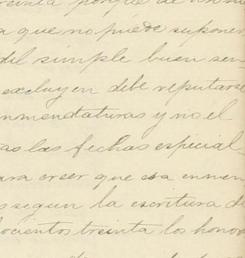 treinta porque de
a que no puede suponer
del simple buen sen
excluyen debe reputarse
nmendaturas y no el
as las fechas especial
ara creer que esa enmen
s segun la escritura d
ocientos treinta los honor